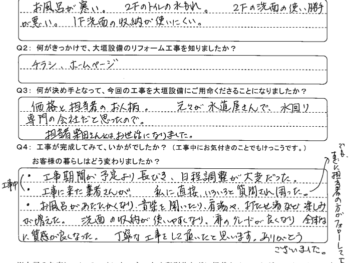 お風呂が寒い。 2Fのトイレの水もれ。 2Fの洗面の使い勝手
が悪い。 1F洗面の収納が使いにくい。
Q2: 何がきっかけで、大垣設備のリフォーム工事を知りましたか？
チラシ、ホームページ
Q3: 何が決め手となって、今回の工事を大垣設備にご用命くださることになりましたか？
価格と担当者のお人柄。 元々が水道屋さんで、水回り
専門の会社だと思ったので。
担当者 さんにはお世話になりました。
Q4: 工事が完成してみて、いかがでしたか？（工事中にお気付きのことでもけっこうです。）
お客様の暮らしはどう変わりましたか？
工事中
・工事期間が予定より長びき、日程調整が大変だった。
・工事に来た業者さんが 私に直接、いろいろと質問され困った。
・お風呂があたたかくなり、音楽を聞いたり、 打たせ湯など 楽しみ
が増えた。 洗面の収納が使いやすくなり、 のグレードが良くなり 全体的
に質感が良くなった。 丁寧な工事をして頂いたと思います。ありがとう
ございました。
でも、 担当者の方がフォローして